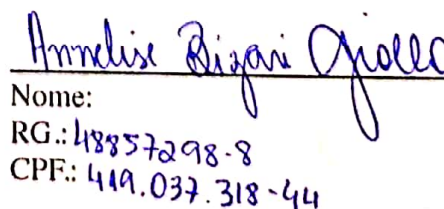 Annelise Bizari Giollo
Nome:
RG.: 48857298-8
CPF.: 419.037.318-44